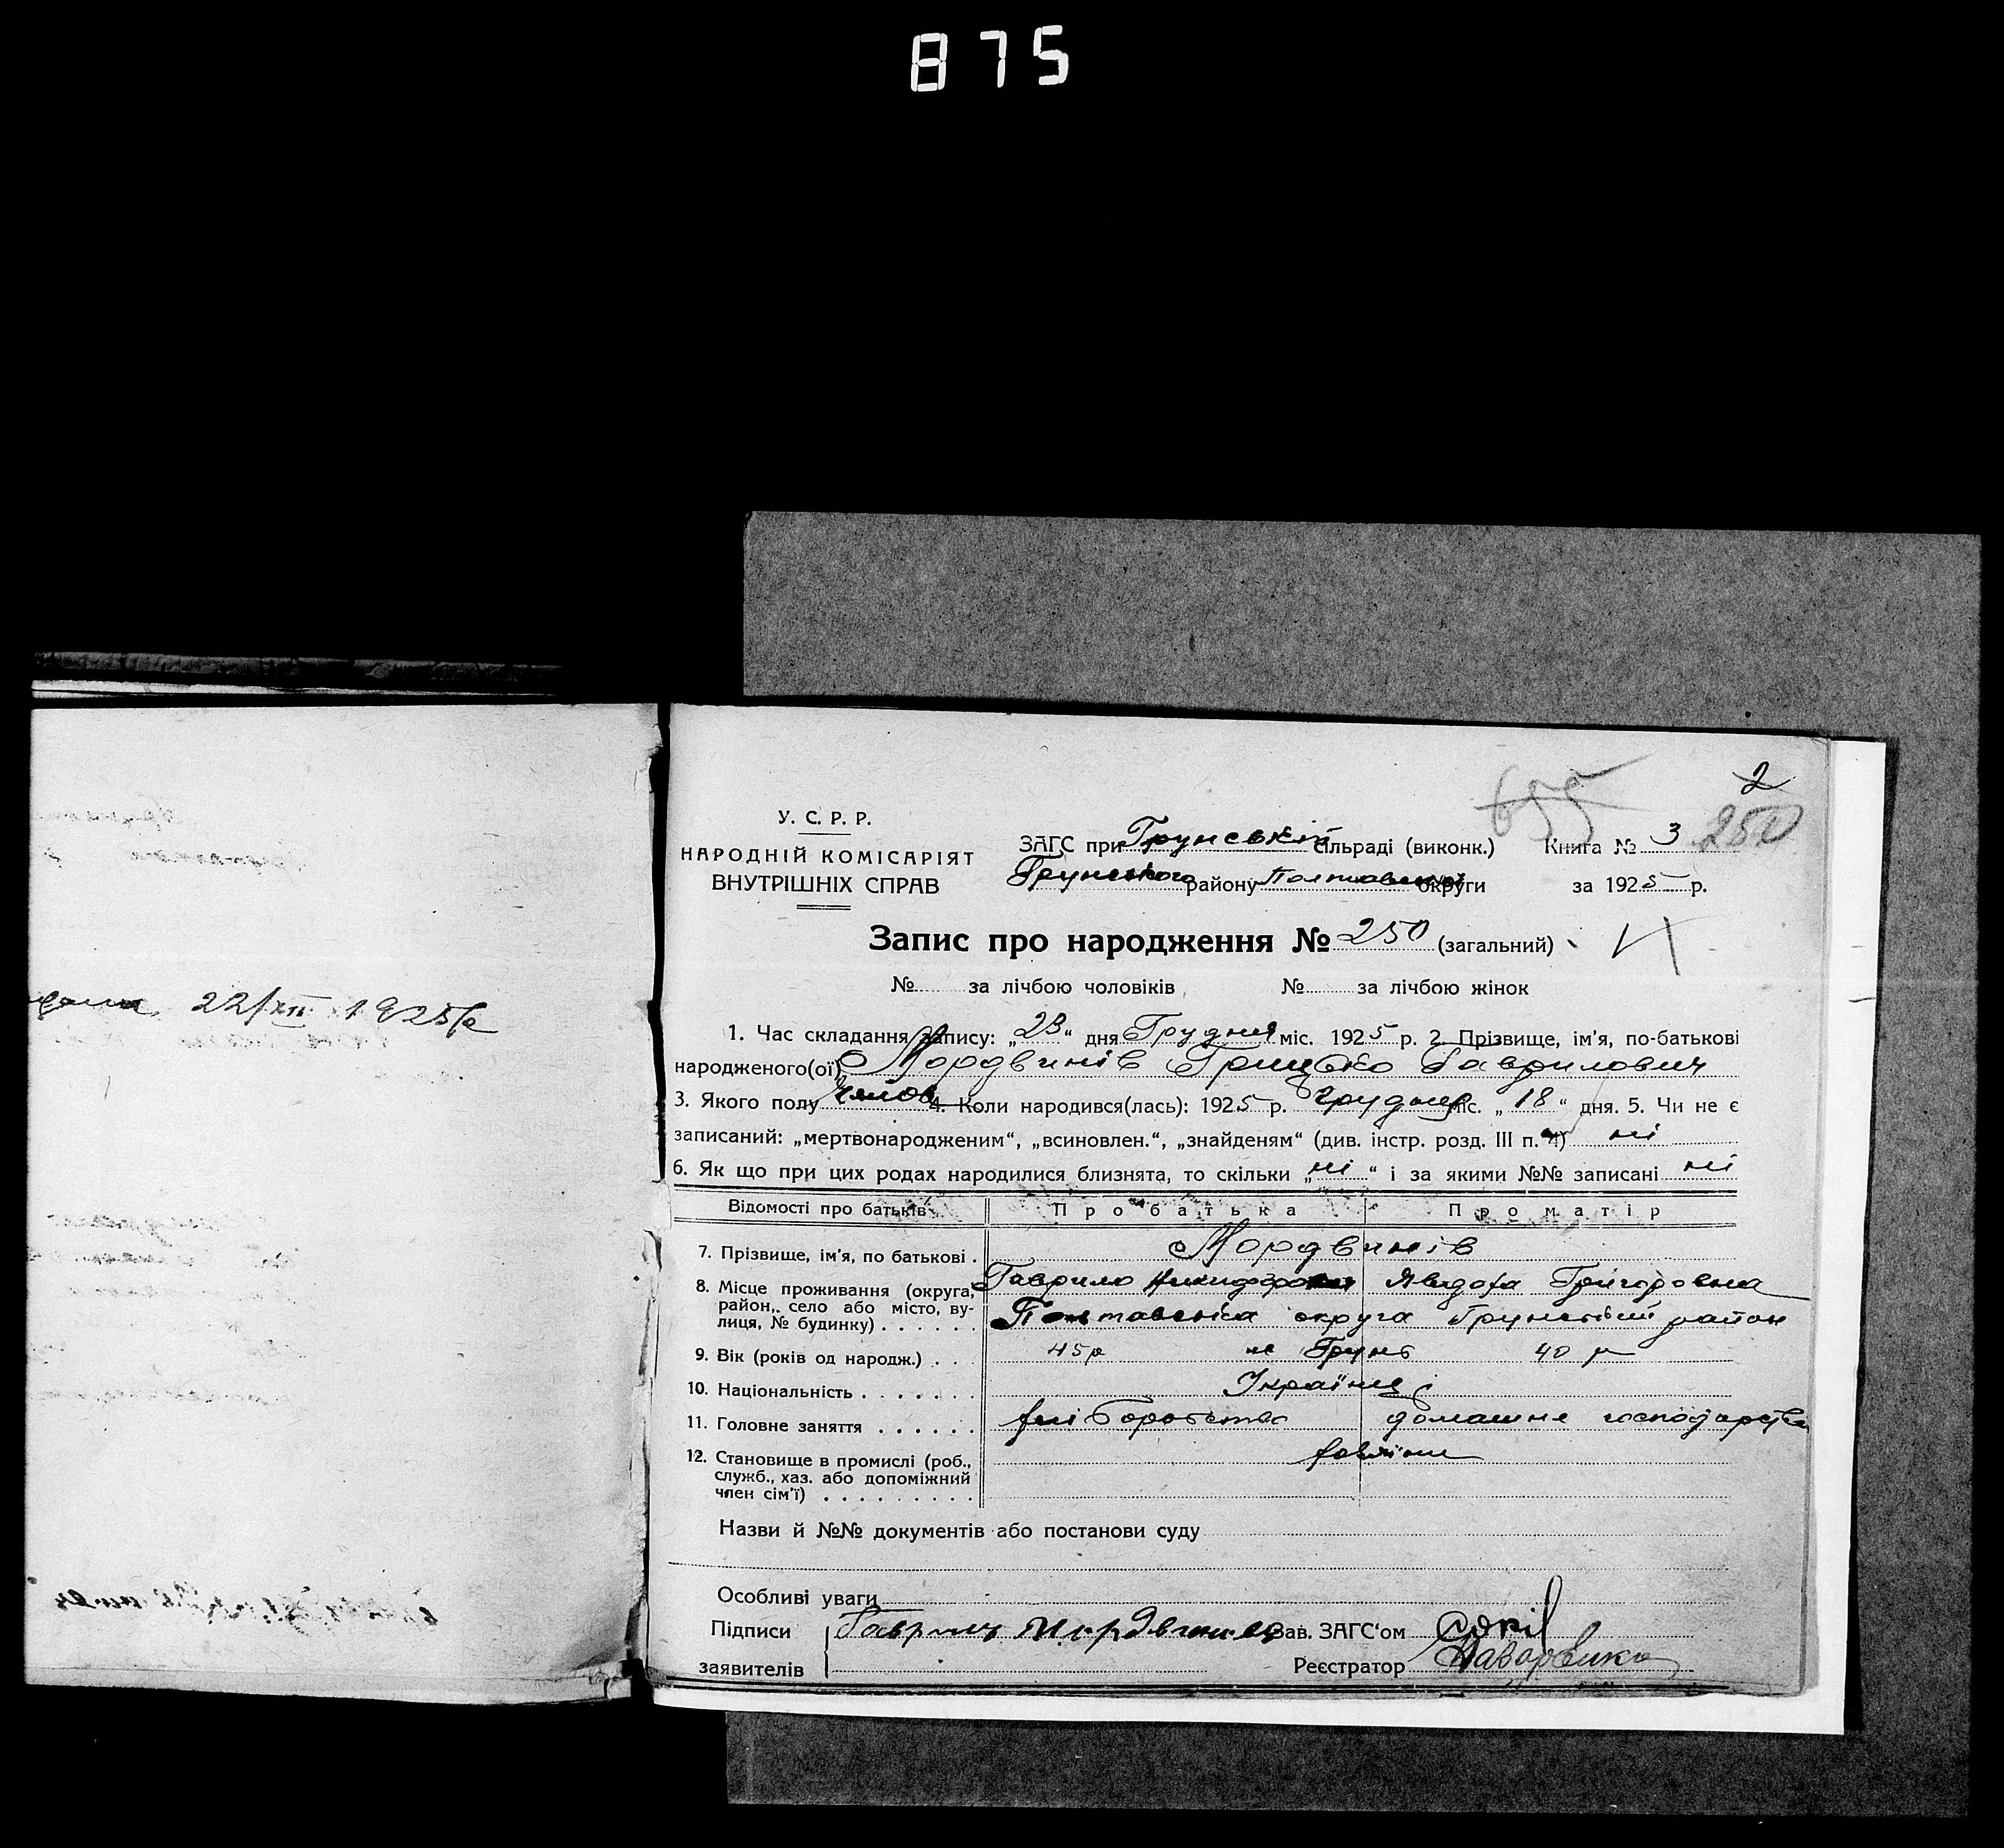 875
22/XII 1925
2
655
250
У. С. Р. Р.
НАРОДНІЙ КОМІСАРІЯТ
ВНУТРІШНІХ СПРАВ
ЗАГС при Грунській сільраді (виконк.) Книга № 3
Грунського району Полтавської округи за 1925 р.
Запис про народження № 250 (загальний)
№ за лічбою чоловіків № за лічбою жінок
1. Час складання запису: „23“ дня Грудня міс. 1925 р. 2. Прізвище, ім'я, по-батькові
народженого(ої) Мордвинів Грицько Гаврилович
3. Якого полу чолов 4. Коли народився(лась): 1925 р. грудня міс. „18“ дня. 5. Чи не є
записаний: „мертвонародженим“, „всиновлен.“, „знайденям“ (див. інстр. розд. III п. 4) ні
6. Як що при цих родах народилися близнята, то скільки „ні“ і за якими №№ записані ні
Відомості про батьків Про батька Про матір
7. Прізвище, ім'я, по батькові . Мордвинів
Гаврило Никифорович Явдоха Григоровна
8. Місце проживання (округа, район, село або місто, вулиця, № будинку) . . . . . . Полтавська округа Грунський район
9. Вік (років од народж.) . . . 45 р м Грунь 40 р
10. Національність . . . . . . . Українці
11. Головне заняття . . . . . . хліборобство домашнє господарство
12. Становище в промислі (роб.,
служб., хаз. або допоміжний
член сім'ї) . . . . . . . . .
Назви й №№ документів або постанови суду
Особливі уваги
Підписи Зав. ЗАГС'ом
заявителів Реєстратор